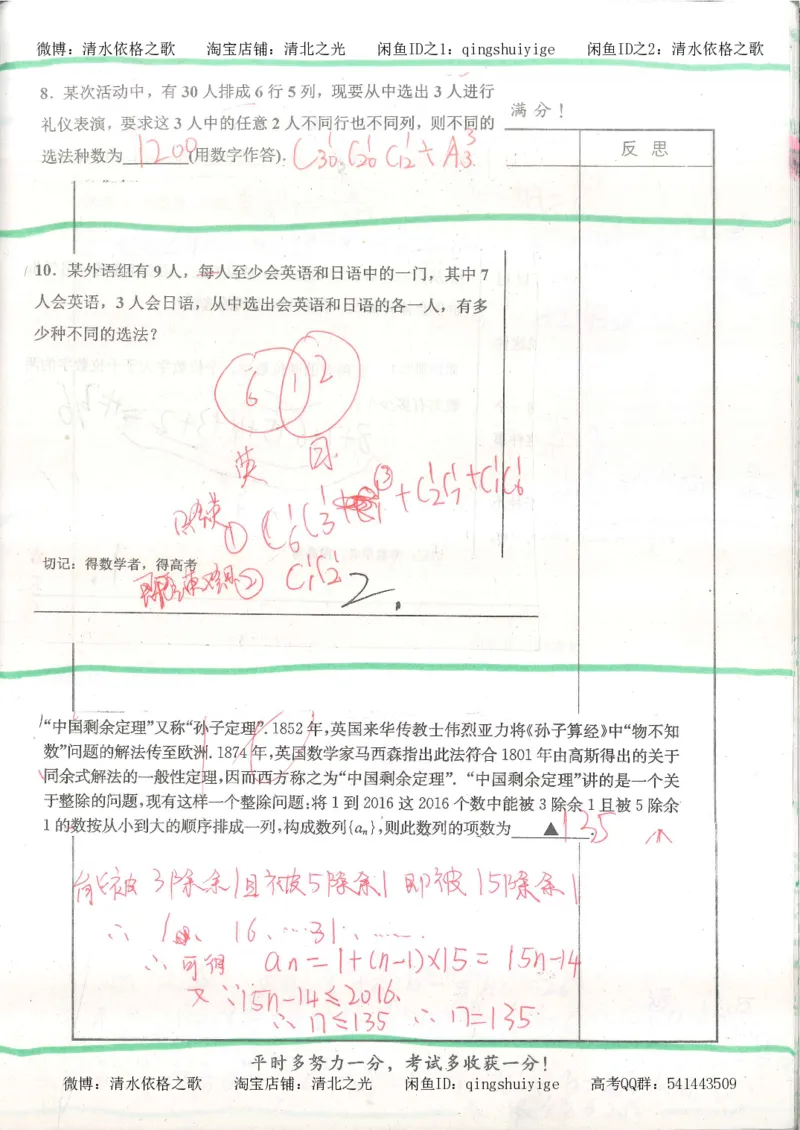 微博：清水依格之歌 淘宝店铺：清北之光 闲鱼ID之1：qingshuiyige 闲鱼ID之2：清水依格之歌
8．某次活动中，有 30 人排成 6 行 5 列，现要从中选出 3 人进行
礼仪表演，要求这 3 人中的任意 2 人不同行也不同列，则不同的
选法种数为 1200 (用数字作答). C₃₀¹ C₂₀¹ C₁₂¹ ÷ A₃³
满分！
反思
10．某外语组有 9 人，每人至少会英语和日语中的一门，其中 7
人会英语，3 人会日语，从中选出会英语和日语的各一人，有多
少种不同的选法？
6 1 2
英 日
① C₆¹C₃¹ + C₂¹C₇¹ + C₁¹C₆¹
切记：得数学者，得高考
② C₁¹C₂¹ 2.
“中国剩余定理”又称“孙子定理”. 1852 年，英国来华传教士伟烈亚力将《孙子算经》中“物不知
数”问题的解法传至欧洲. 1874 年，英国数学家马西森指出此法符合 1801 年由高斯得出的关于
同余式解法的一般性定理，因而西方称之为“中国剩余定理”. “中国剩余定理”讲的是一个关
于整除的问题，现有这样一个整除问题：将 1 到 2016 这 2016 个数中能被 3 除余 1 且被 5 除余
1 的数按从小到大的顺序排成一列，构成数列{aₙ}，则此数列的项数为 ▲ 135.
能被 3除余1且被5除余1 即被15除余1
∴ 1、16、…31、……
∴ 可得 an = 1+(n-1)×15 = 15n-14
又∵15n-14≤2016.
∴ n≤135 ∴ n=135
平时多努力一分，考试多收获一分！
微博：清水依格之歌 淘宝店铺：清北之光 闲鱼ID：qingshuiyige 高考QQ群：541443509